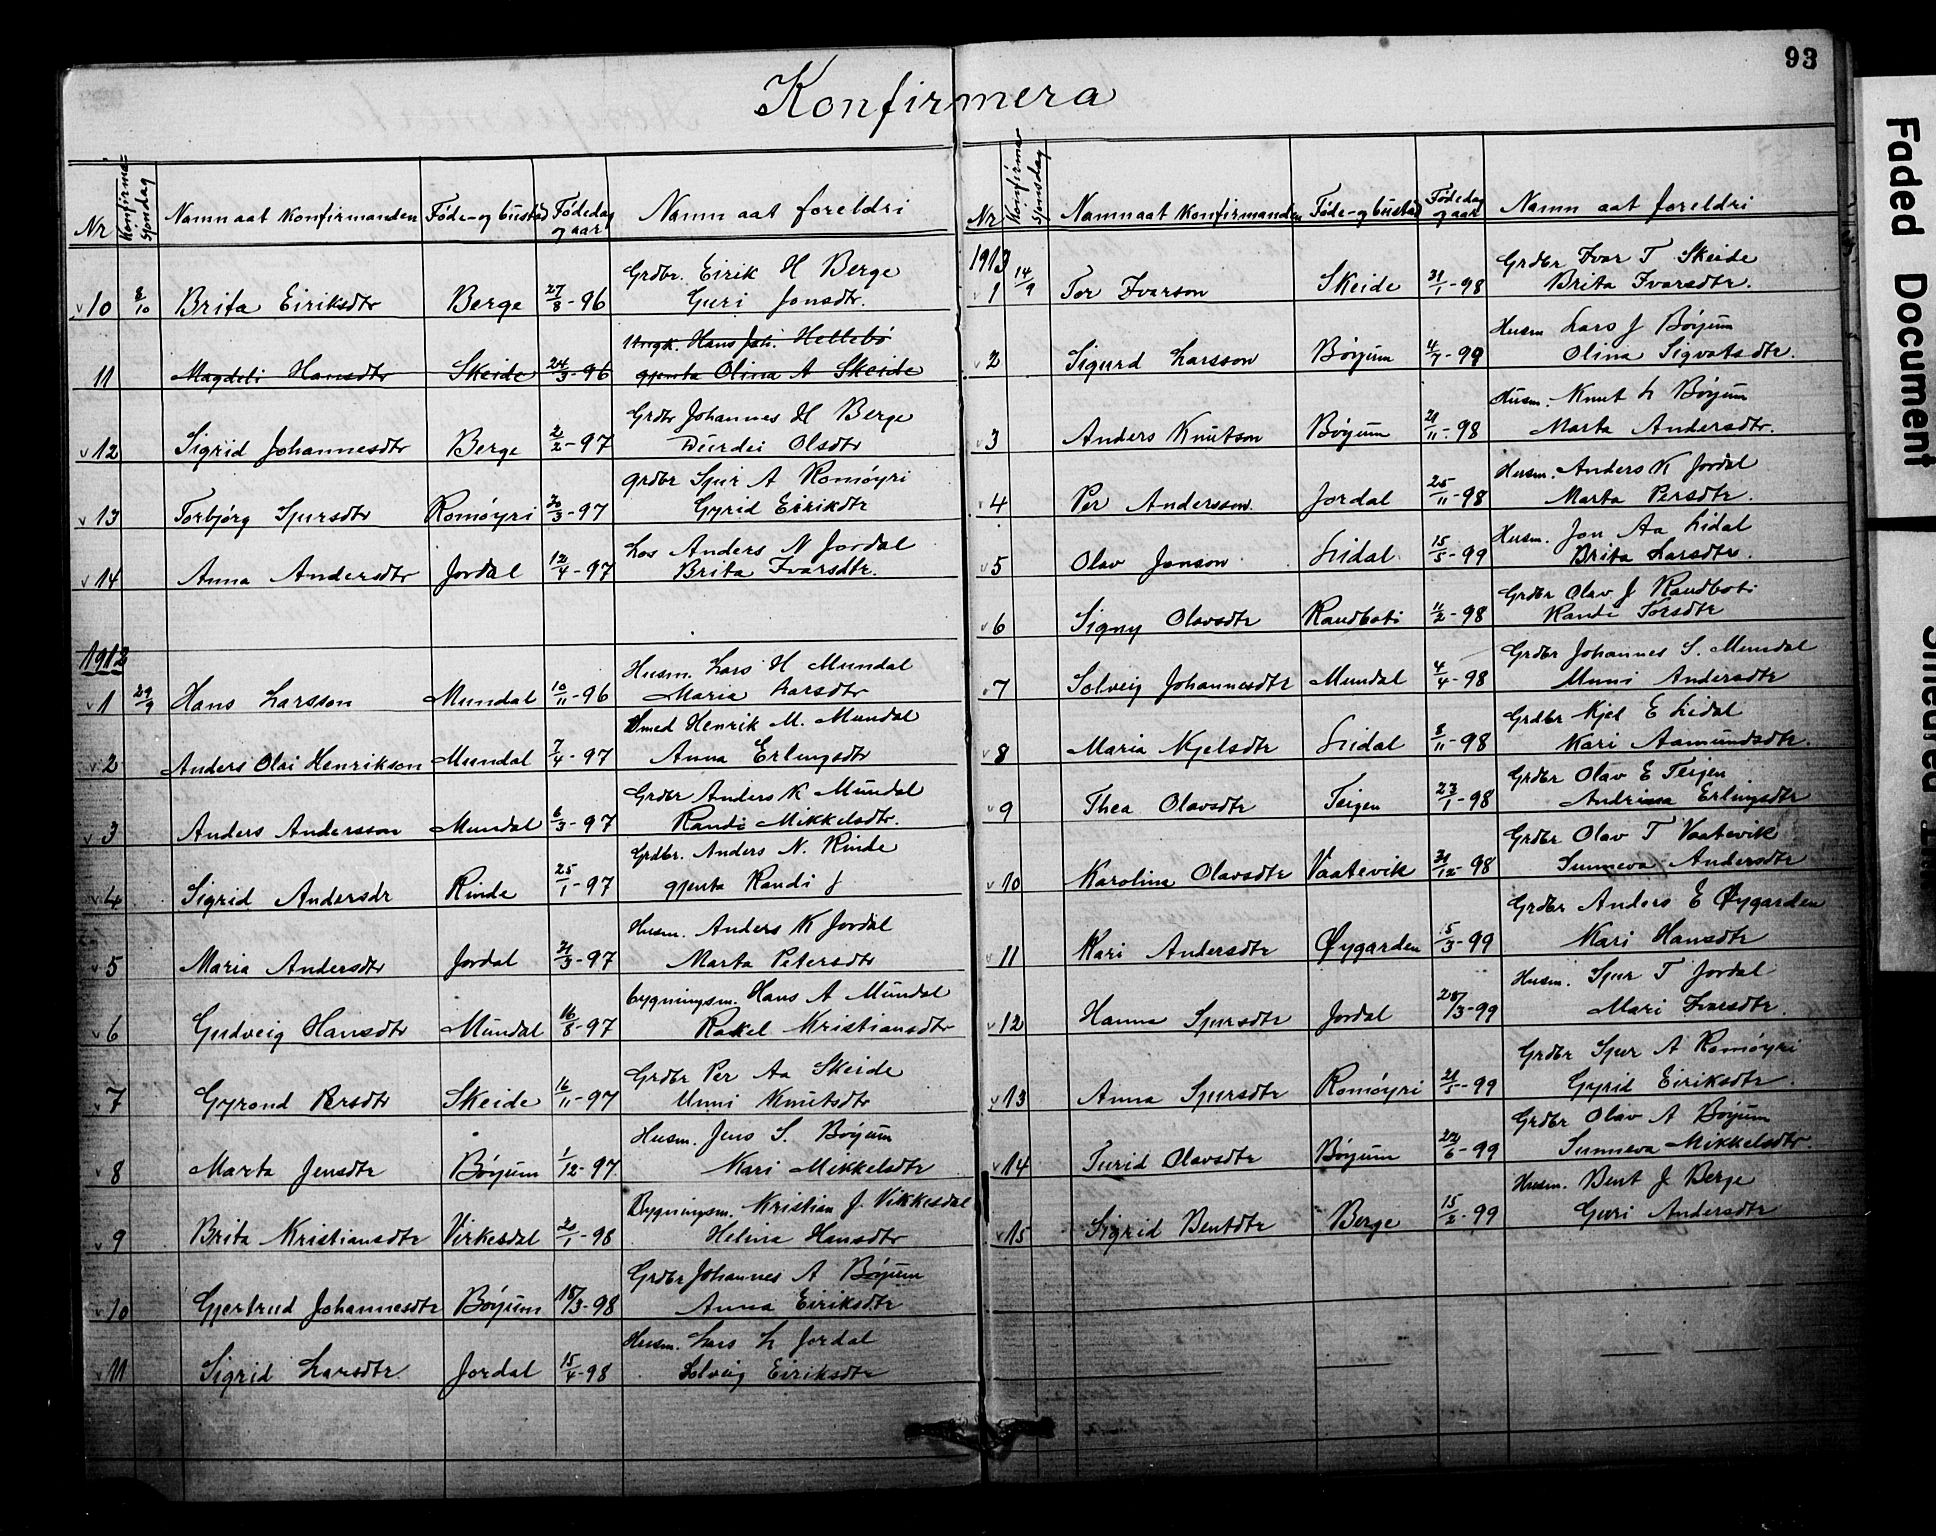 93
Konfirmera
Nr Konfirma= sjondag Namn aat Konfirmanden Føde- og bustad Fødedag og aar Namn aat foreldri
Grdbr. Eirik H Berge
10 8/10 Brita Eiriksdtr Berge 27/8-96 Guri Jonsdtr.
Ungk. Hans Joh. Hellebø
11 Magdeli Hansdtr Skeide 24/3-96 gjenta Olina A Skeide
Grdbr Johannes H Berge
v 12 Sigrid Johannesdtr Berge 2/2-97 Durdei Olsdtr
grdbr Spur A Romøyri
v 13 Torbjørg Spursdtr Romøyri 20/3-97 Gyrid Eirikdtr
Los Anders N Jordal
v 14 Anna Andersdtr Jordal 12/4-97 Brita Ivarsdtr.
1912
Husm. Lars H Mundal
v 1 29/9 Hans Larsson Mundal 10/11-96 Maria Larsdtr
Smed Henrik M. Mundal
v 2 Anders Olai Henrikson Mundal 7/4-97 Anna Erlingsdtr
Grdbr Anders K Mundal
v 3 Anders Andersson Mundal 6/3-97 Randi Mikkelsdtr.
Grdbr. Anders N. Rinde
v 4 Sigrid Andersdr Rinde 25/1-97 gjenta Randi J
Husm. Anders K Jordal
v 5 Maria Andersdtr Jordal 21/3-97 Marta Petersdtr
bygningsm. Hans A Mundal
v 6 Gudveig Hansdtr Mundal 16/8-97 Rakel Kristiansdtr
Grdbr Per Aa Skeide
v 7 Gyrond Persdtr Skeide 16/11-97 Unni Knutsdtr
Husm. Jens S. Bøyum
v 8 Marta Jensdtr Bøyum 1/12-97 Kari Mikkelsdtr
Bygningsm. Kristian J. Vikkesdal
v 9 Brita Kristiansdtr Virkesdal 20/1-98 Helina Hansdtr
Grdbr Johannes A Bøyum
v 10 Gjertrud Johannesdtr Bøyum 18/3-98 Anna Eiriksdtr
Husm. Lars L Jordal
v 11 Sigrid Larsdtr Jordal 15/4-98 Solveig Eiriksdtr
Nr Konfirma sjonsdag Namn aat Konfirmanden Føde- og bustad Fødedag og aar Namn aat foreldri
1913 Grdbr Ivar T Skeide
v 1 14/9 Tor Ivarson Skeide 31/1-98 Brita Ivarsdtr.
Husm Lars J Bøyum
v 2 Sigurd Larsson Bøyum 4/7-99 Olina Sigvatsdtr.
Husm. Knut L Bøyum
v 3 Anders Knutson Bøyum 21/11-98 Marta Andersdtr.
Husm. Anders K Jordal
v 4 Per Andersson Jordal 25/11-98 Marta Persdtr.
Husm. Jon Aa Lidal
v 5 Olav Jonson Lidal 15/5-99 Brita Larsdtr.
Grdbr Olav J Raudboti
v 6 Signy Olavsdtr Raudboti 11/2-98 Randi Torsdtr
Grdbr Johannes S. Mundal
v 7 Solveig Johannesdtr Mundal 4/4-98 Unni Andersdtr
Grdbr Kjel E Lidal
v 8 Maria Kjelsdtr Lidal 8/11-98 Kari Aamundsdtr.
Grdbr Olav E Teigen
v 9 Thea Olavsdtr Teigen 23/1-98 Andrina Erlingsdtr
Grdbr Olav T Vaatevik
v 10 Karolina Olavsdtr Vaatevik 31/12-98 Sunneva Andersdtr
Grdbr Anders E Øygarden
v 11 Kari Andersdtr Øygarden 15/3-99 Kari Hansdtr
Husm. Spur T Jordal
v 12 Hanna Spursdtr Jordal 28/3-99 Mari Ivarsdtr.
Grdbr Spur A Romøyri
v 13 Anna Spursdtr Romøyri 21/5-99 Gyrid Eiriksdtr.
Grdbr Olav A Bøyum
v 14 Turid Olavsdtr Bøyum 22/6-99 Sunneva Mikkelsdtr.
Husm. Bent J Berge
v 15 Sigrid Bentdtr Berge 15/2-99 Guri Andersdtr
Faded Document